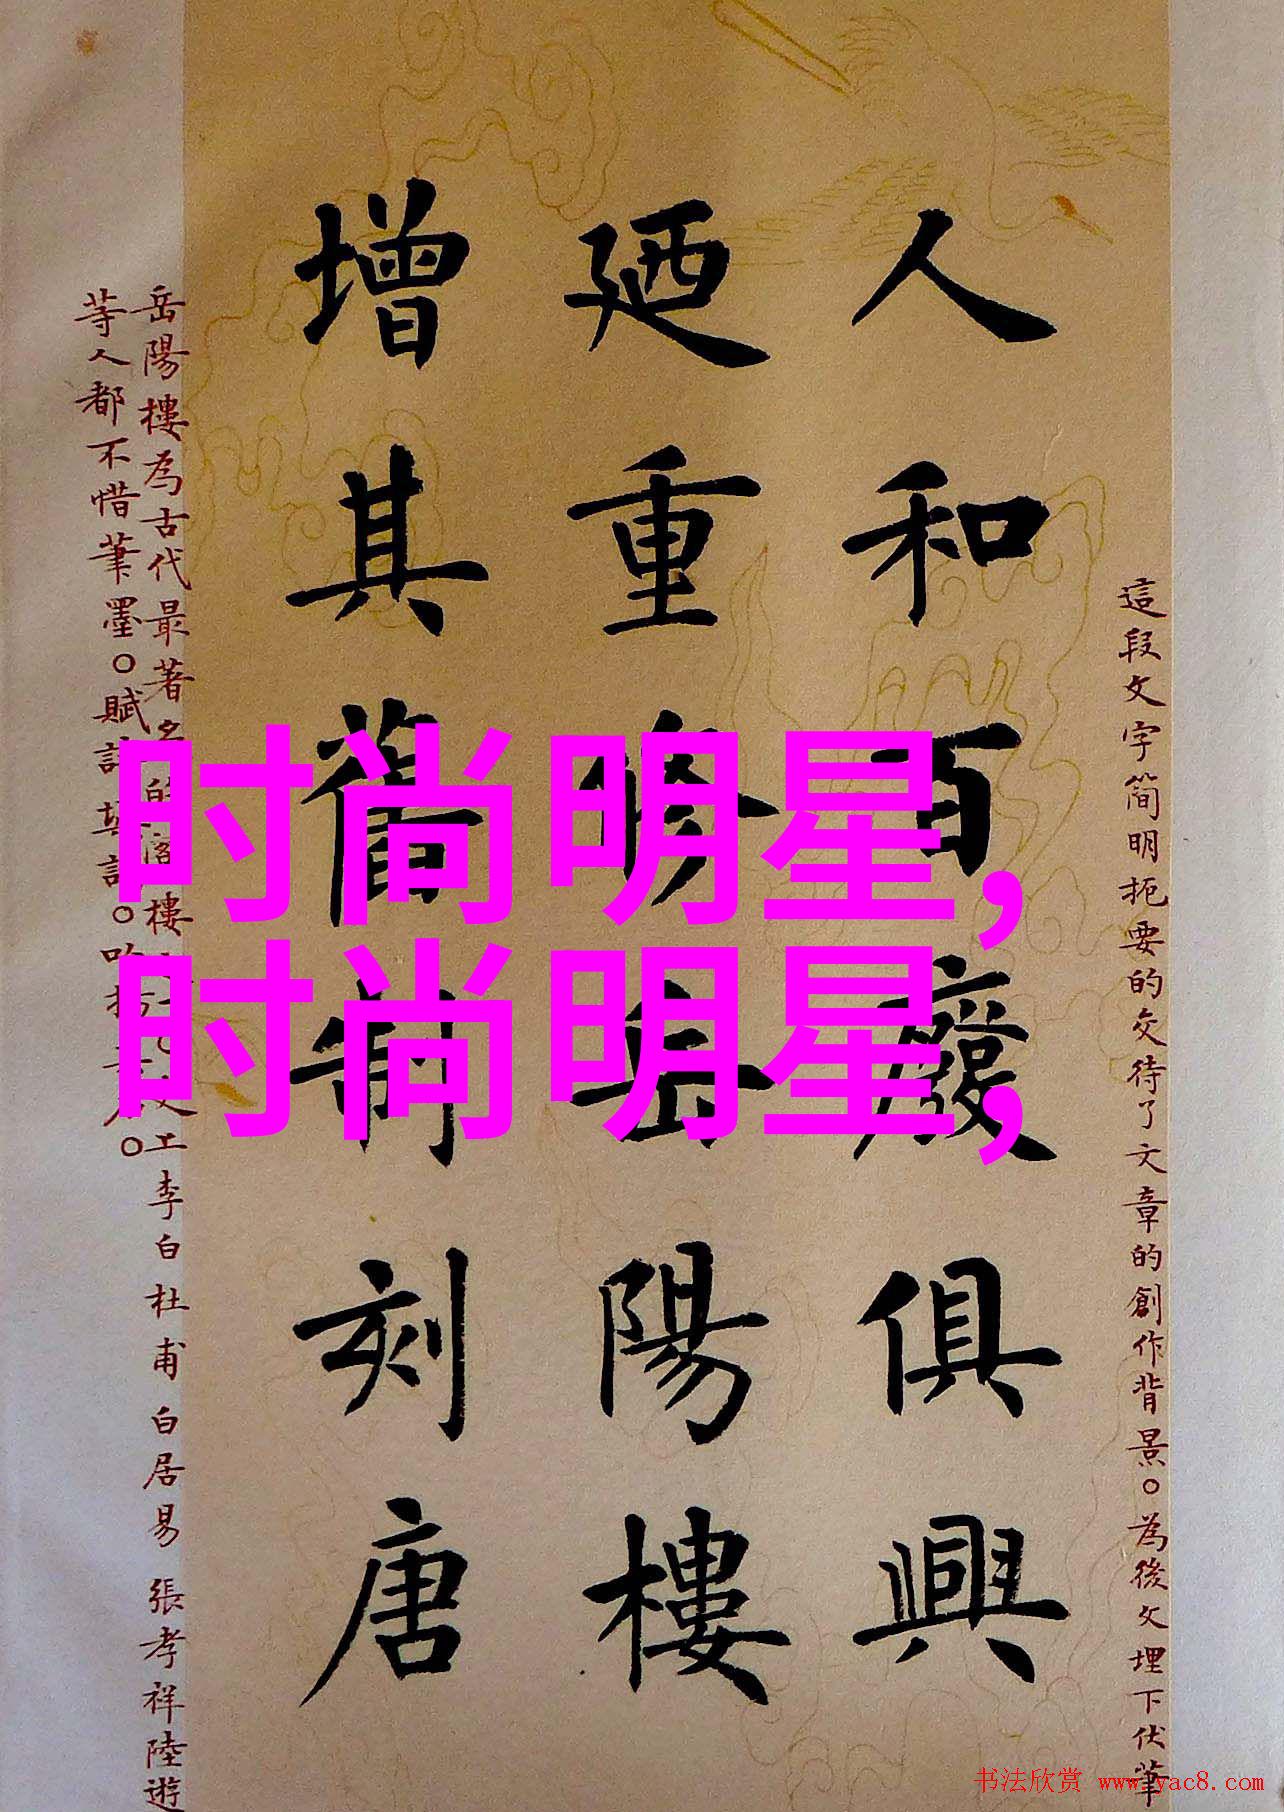 這段文字簡明扼要的交待了文章的創作背景。為後文埋下伏筆
人和百廢俱興
廼重修岳陽樓
增其舊制刻唐
岳陽樓為古代最著名的閣樓
工李白杜甫白居易張孝祥陸遊
等人都不惜筆墨。賦詩
時尚明星,
时尚明星,
书法欣赏 www.yac8.com